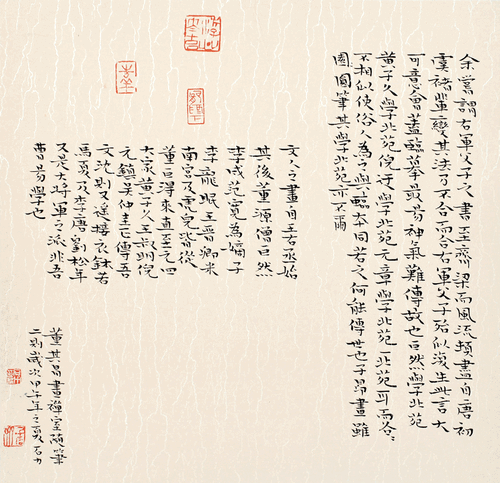 余嘗謂右軍父子之書至齊梁而風流頓盡自唐初
虞褚輩變其法乃不合而合右軍父子殆似復生此言大
可意會蓋臨摹最易神氣難傳故也巨然學北苑
黃子久學北苑倪迂學北苑元章學北苑一北苑耳而各各
不相似使俗人為之與臨本同若之何能傳世也子昂畫雖
圓筆其學北苑亦不爾
文人之畫自王右丞始
其後董源僧巨然
李成范寬為嫡子
李龍眠王晉卿米
南宮及虎兒皆從
董巨得來直至元四
大家黃子久王叔明倪
元鎮吳仲圭正傳吾
文沈則又遙接衣鉢若
馬夏及李唐劉松年
又是大將軍之派非吾
曹易學也
董其昌畫禪室隨筆
二則歲次甲午年之夏石力